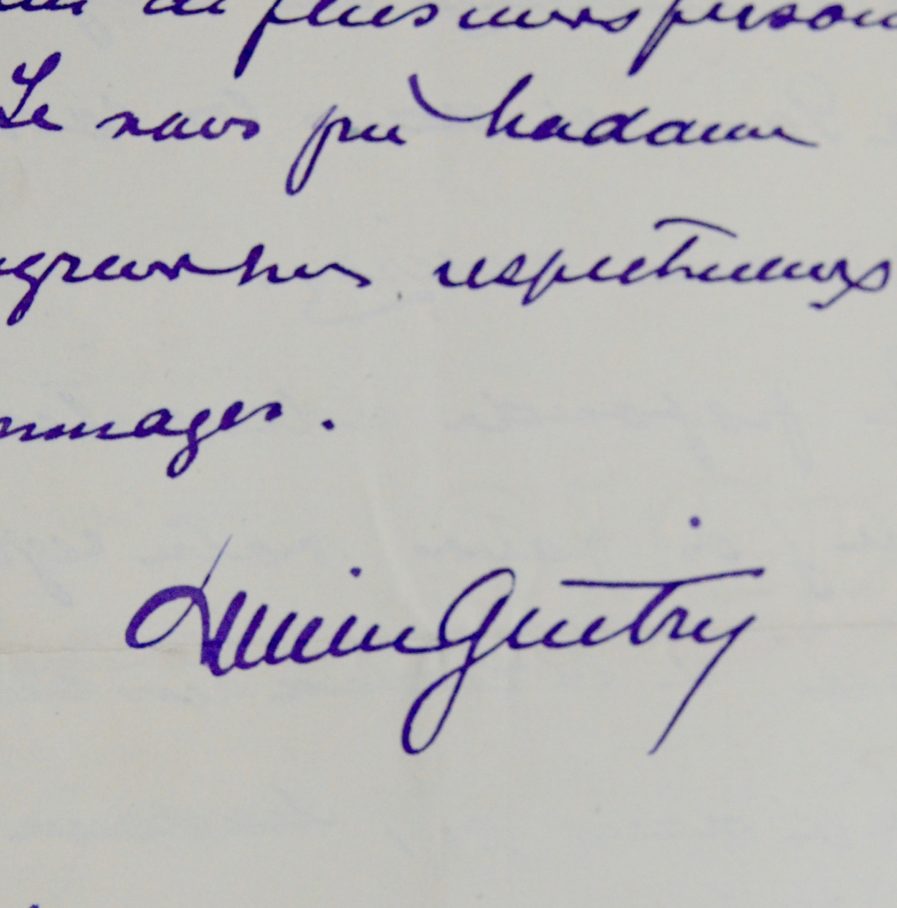 de plusieurs person
Je vous prie Madame
agréer mes respectueux
mmages.
Lucien Guitry